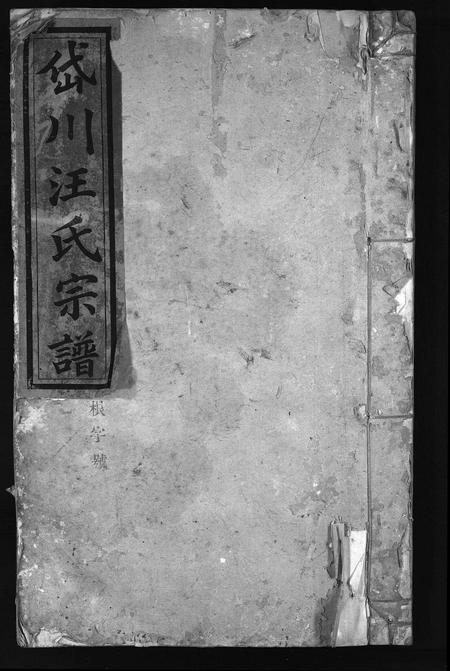 岱川汪氏宗譜
根字號